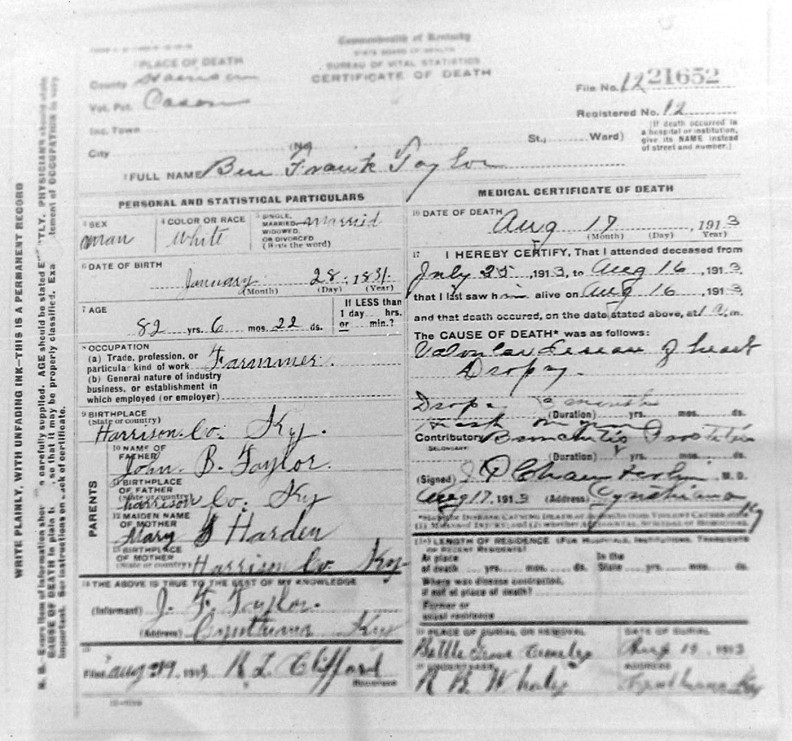 Commonwealth of Kentucky
STATE BOARD OF HEALTH
BUREAU OF VITAL STATISTICS
CERTIFICATE OF DEATH
PLACE OF DEATH
County Harrison
Vot. Pct. Cason
Inc. Town
City
(No.
St.;
Ward)
File No. 12 21652
Registered No. 12
(If death occurred in
a hospital or institution,
give its NAME instead
of street and number.)
FULL NAME Ben Frank Taylor
PERSONAL AND STATISTICAL PARTICULARS
SEX
man
4 COLOR OR RACE
White
5 SINGLE,
MARRIED, married
WIDOWED,
OR DIVORCED
(Write the word)
6 DATE OF BIRTH
January 28, 1831
(Month) (Day) (Year)
7 AGE
82 yrs. 6 mos. 22 ds.
If LESS than
1 day hrs.
or min.?
8 OCCUPATION
(a) Trade, profession, or
particular kind of work Farmmer.
(b) General nature of industry
business, or establishment in
which employed (or employer)
9 BIRTHPLACE
(State or country)
Harrison. Co. Ky.
PARENTS
10 NAME OF
FATHER
John B. Taylor.
11 BIRTHPLACE
OF FATHER
(State or country)
harrison Co. Ky
12 MAIDEN NAME
OF MOTHER
Mary Harden
13 BIRTHPLACE
OF MOTHER
(State or country) Harrison Co. Ky.
14 THE ABOVE IS TRUE TO THE BEST OF MY KNOWLEDGE
(Informant) J. F. Taylor.
(Address) Cynthiana Ky
15
Filed aug 1913 R L Clifford
REGISTRAR
MEDICAL CERTIFICATE OF DEATH
16 DATE OF DEATH
Aug 17, 1913
(Month) (Day) Year)
17 I HEREBY CERTIFY, That I attended deceased from
July 25, 1913, to Aug 16, 1913
that I last saw him alive on Aug 16, 1913
and that death occurred, on the date stated above, at 1 a. m.
The CAUSE OF DEATH* was as follows:
of heart
Dropsy.
(Duration) yrs. mos. ds.
Contributory Bronchitis
SECONDARY
(Duration) yrs. mos. ds.
(Signed) M. D.
Aug 17, 1913 (Address) Cynthiana Ky
LENGTH OF RESIDENCE (For Hospitals, Institutions, Transients
or Recent Residents)
At place
of death yrs. mos. ds.
In the
State yrs. mos. ds.
Where was disease contracted,
if not at place of death?
Former or
usual residence
19 PLACE OF BURIAL OR REMOVAL
Battle Grove Cemetery
DATE OF BURIAL
Aug 19 1913
20 UNDERTAKER
R B Whaley
ADDRESS
Cynthiana Ky
WRITE PLAINLY, WITH UNFADING INK—THIS IS A PERMANENT RECORD